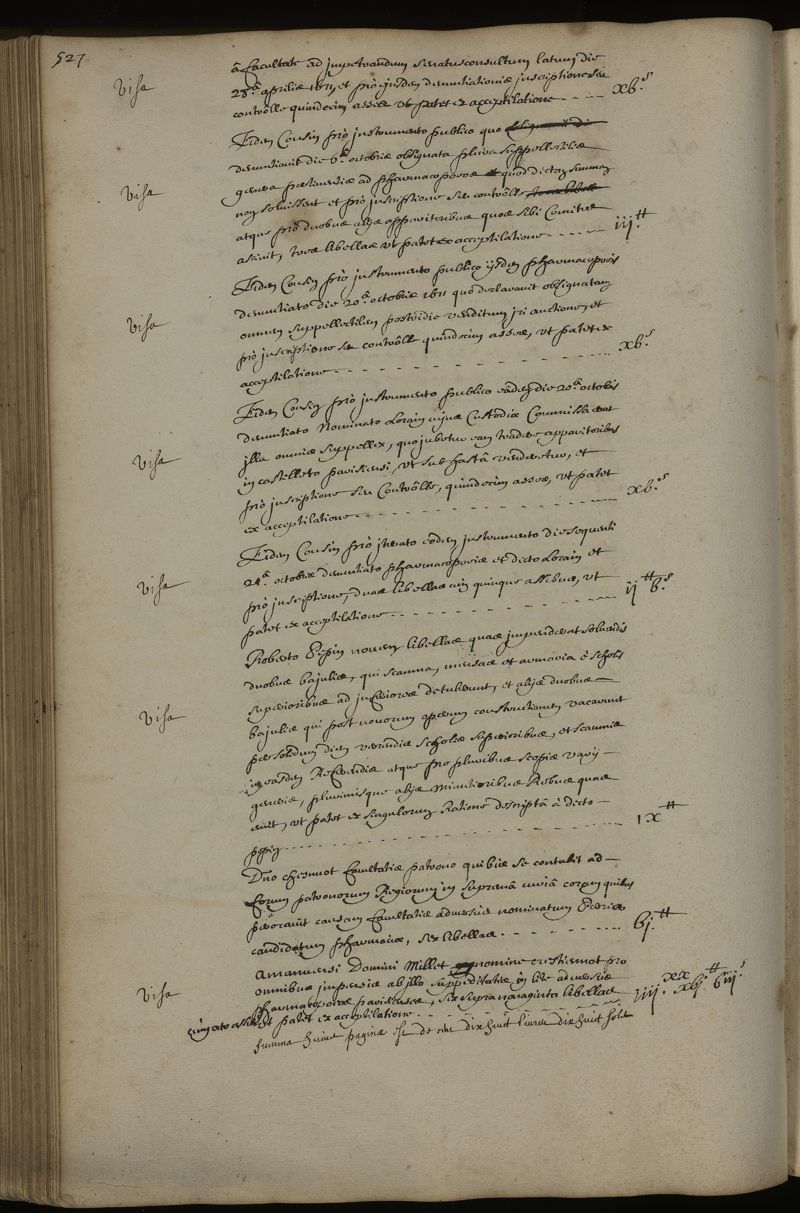 527
à facultate ad impetrandum senatusconsultum latum die
Visa
28ª aprilis 1671, et prò ejusdem denuntiationis inscriptione seu
controlle quindecim asses vt patet ex acceptilatione - - - - xbˢ
Eidem Cousin prò instrumento publico quo
denuntiavit die 6ª octobris obsignata plura suppellectilis
Visa
genera pertinentis ad pharmacopoeos quod dictam summam
non soluissent et prò inscriptione seu controlle
atque prò duobus alijs apparitoribus quos sibi Comites
asciuit, tres libellas vt patet ex acceptilatione - - - - - iij ₶
Eidem Cousin prò instrumento publico ijsdem pharmacopoeis
denuntiato die 20ª octobris 1671 quo declaravit obsignatam
Visa
omnem suppellectilem postridie venditum iri auctione, et
prò inscriptione seu controlle quindecim asses, vt patet ex
acceptilatione - - - - - - - - - - xbˢ
Eidem Cousin prò instrumento publico eâdem die 20ª octobris
denuntiato Nominato Lorain cujus Custodiæ Commissa erat
illa omnis suppellex, quo jubetur eam tradere apparitoribus
Visa
in castelleto parisiensi, vt sub hastâ venderetur, et
prò inscriptione seu Controlle, quindecim asses, vt patet
ex acceptilatione - - - - - - - - - - xbˢ
Eidem Cousin prò iterato eodem instrumento die sequenti
24ª octobris denuntiato pharmacopoeis et dicto Lorain et
Visa
prò inscriptione, duas libellas cum quinque assibus, vt
patet ex acceptilatione - - - - - - - - - ij ₶ bˢ
Roberto Pepin novem libellas quas impenderat soluendis
duobus bajulis, qui scamna, mensas et armaria è scholis
superioribus ad inferiores detulerunt, et alijs duobus
Visa
bajulis qui post novorum operum constructionem vacarunt
per solidum diem verrendis scholis superioribus, et scamnis
in easdem Referendis atque pro pluribus scopis varij
generis, plurimisque alijs minutioribus Rebus quas
emit, vt patet ex singulorum Ratione descriptâ à dicto
pepin - - - - - - - - - - - - - ix ₶
Dno chesmot facultatis patrono quibus se contulit ad
forum patronorum Regiorum in supremâ curiâ coram quibus
peroravit causam facultatis adversus nominatum
candidatum pharmaciæ, sex libellas - - - - - - - bj ₶
Amanuensi Domini Millet nomine pro
omnibus impensis ab illo suppeditatis in lite adversus
Visa
pharmacopoeos parisienses, sex supra nonaginta libellas
cum octo assibus vt patet ex acceptilatione - - - - - - - iiij xx xbj ₶ biij ˢ
summa hujus paginæ est de cent dix huit livres dix huit sols